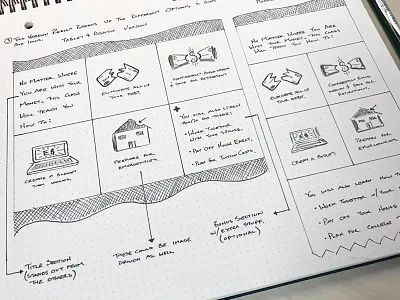 This Version Really Breaks Up The Different Options & Sums
Tablet & Desktop Version
No Matter Where
You Are With Your
Money - This Class
Will Teach You
How To:
Eliminate All of
Your Debt.
Confidently Build Wealth
& Save For Retirement.
Create a Budget
That Works.
Prepare For
Emergencies.
+
You will also learn
how to:
• Work Together
with Your Spouse.
• Pay Off Home Early.
• Plan For Tuition Costs.
Title Section
(Stands out from
the others)
These could be image
driven as well
Bonus Section
w/ extra stuff.
(optional)
No Matter Where You Are
With Your Money - This Class
Will Teach You How To:
Eliminate All of
Your Debt.
Confidently Build
Wealth & Save For
Retirement.
Create a Budget
Prepare For
Emergencies.
You will also learn how to
• Work Together w/ Your
• Pay Off Your House
• Plan For College